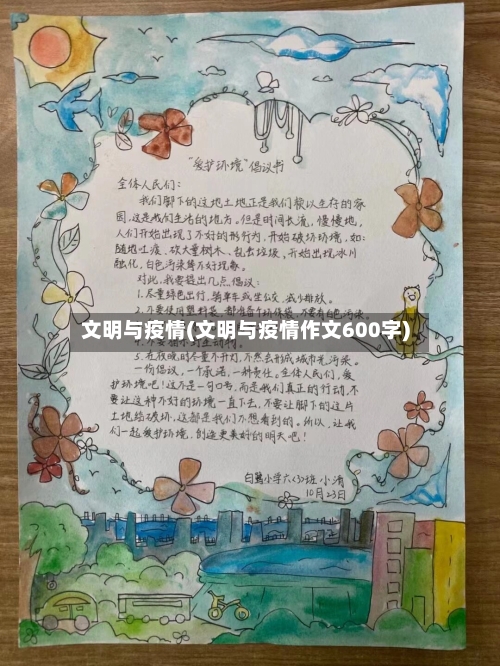 "爱护环境"倡议书
全体人民们:
我们脚下的这地土地正是我们赖以生存的家
园,这是我们生活的地方。但是时间长流,慢慢地,
人们开始出现了不好的形行为,开始破坏环境,如:
随地吐痰、砍大量树木、乱丢垃圾、开始出现冰川
融化,白色污染等不好现象。
对此,我要提出几点倡议:
1.尽量绿色出行,骑单车或坐公交,减少排放。
文明与疫情(文明与疫情作文600字)
5.在夜晚时尽量不开灯,不然会形成城市光污染。
一份倡议,一个承诺,一种责任。全体人民们,爱
护环境吧!这不是一句口号,而是我们真正的行动,不
要让这种不好的环境一直下去,不要让脚下的这片
土地给破坏,这都是我们不想看到的。所以,让我
们一起爱护环境,创造更美好的明天吧!
白鹭小学六(3)班 小清
10月23日